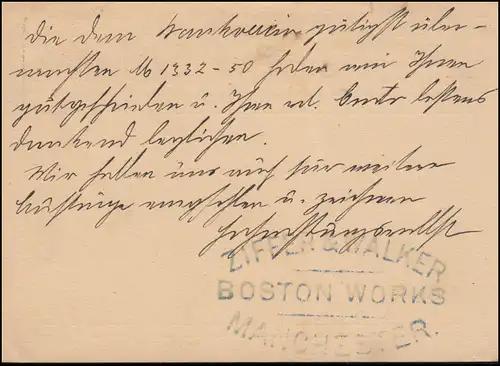 Die dem Bankverein gütigst über-
machten M 1332-50 haben wir Ihnen
gutgeschrieben u. Ihre w. Conto bestens
dankend beglichen.
Wir halten uns auch für weitere
Aufträge empfohlen u. zeichnen
Hochachtungsvollst
ZIFFER & WALKER
BOSTON WORKS
MANCHESTER.